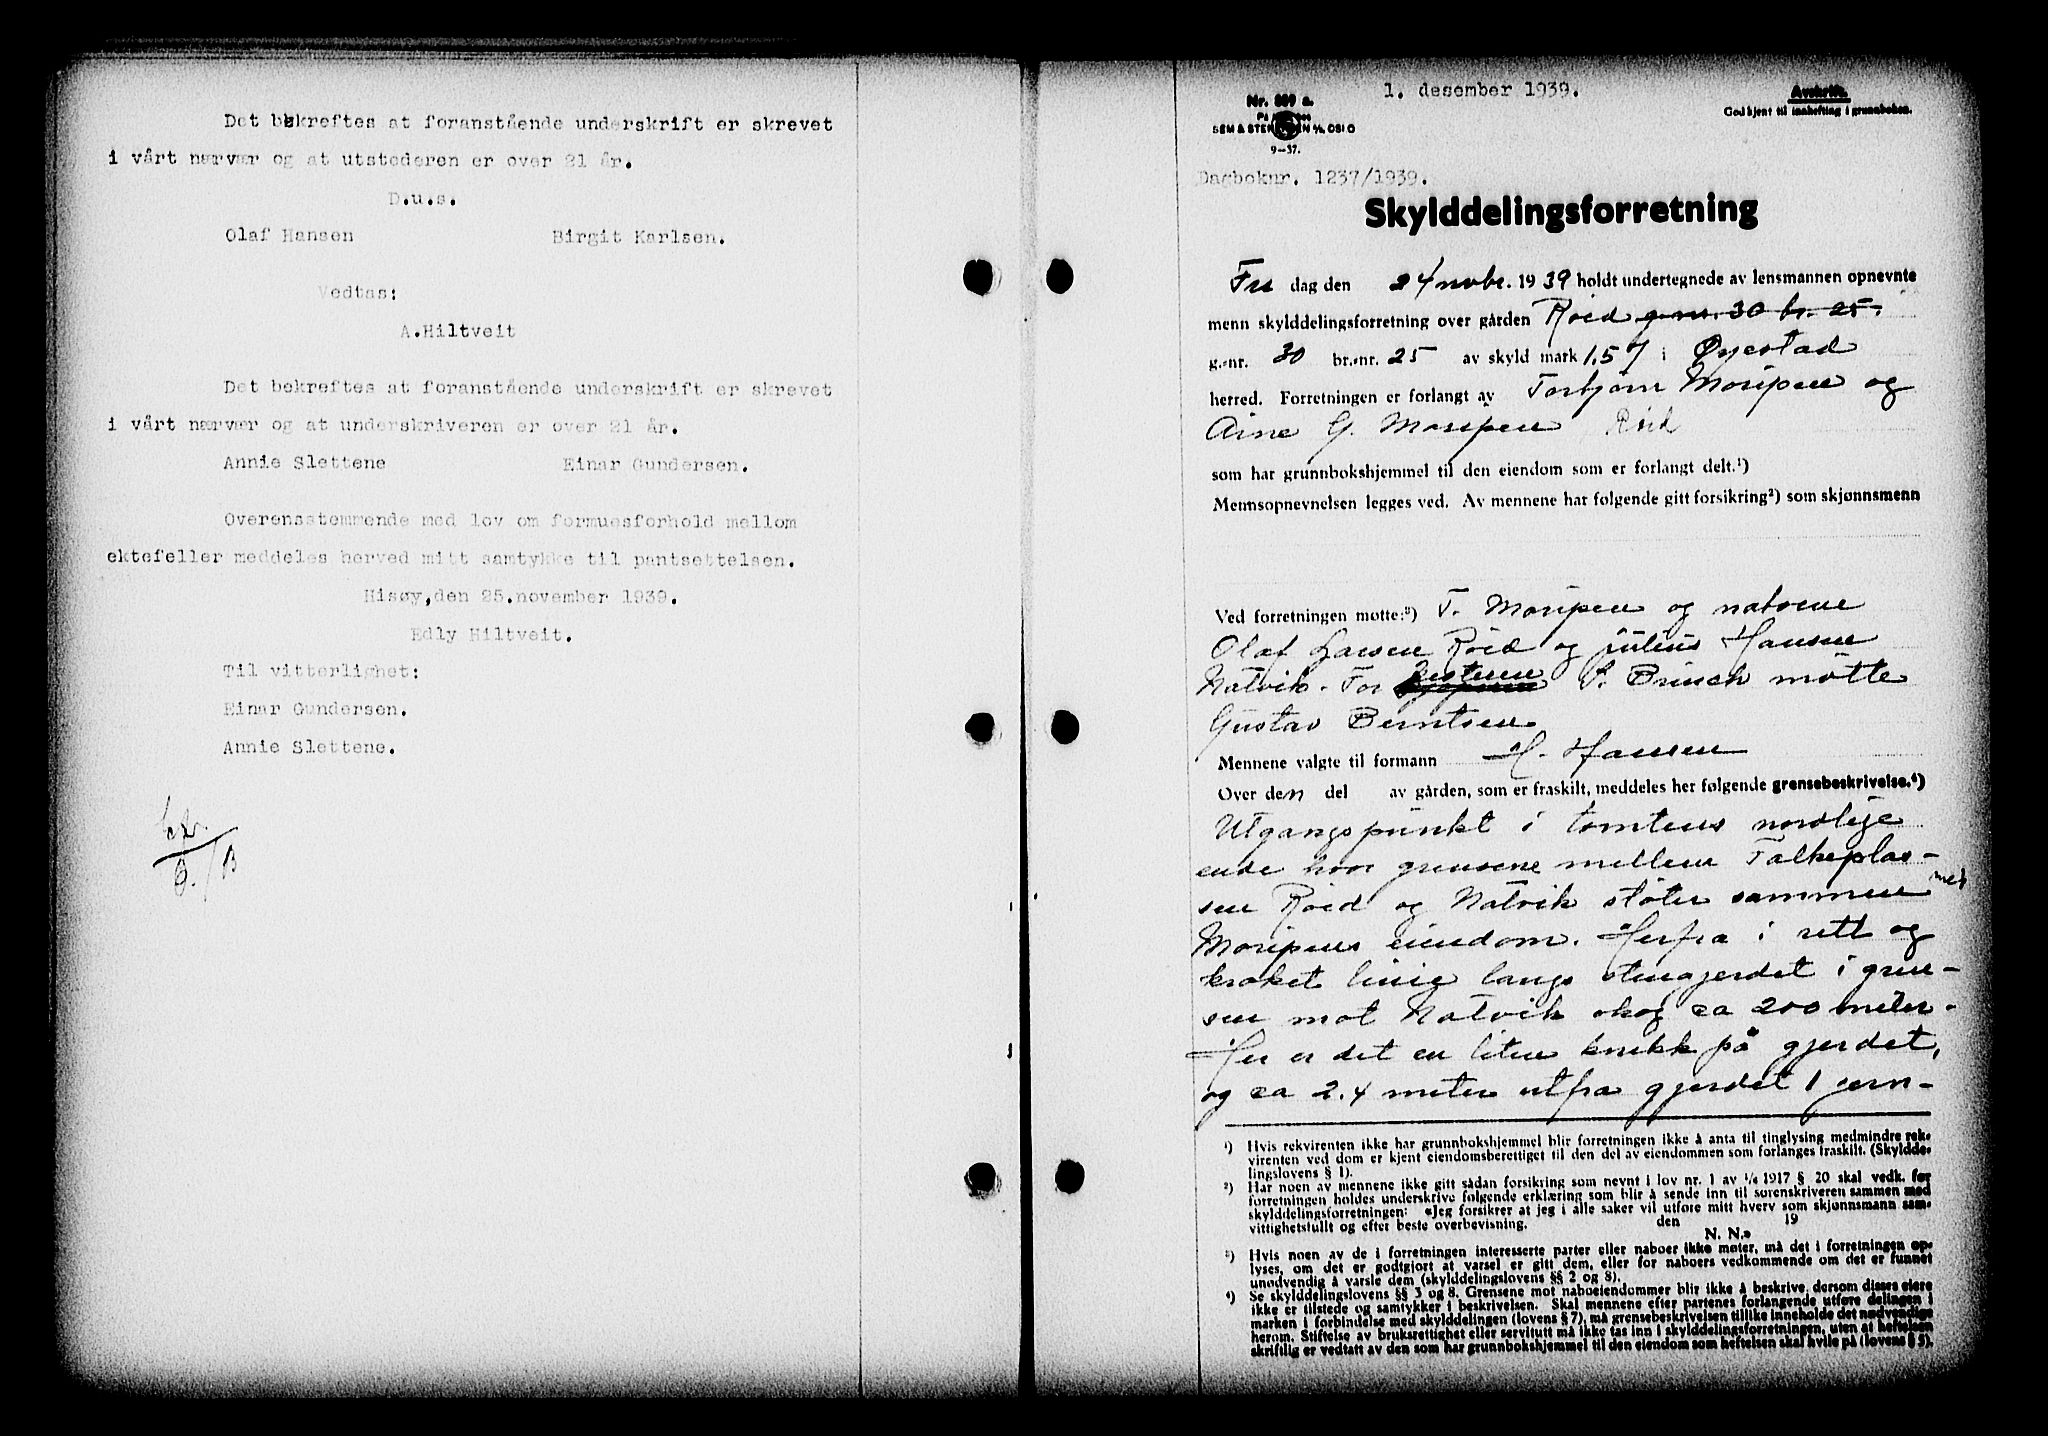 Det bekreftes at foranstående underskrift er skrevet
i vårt nærvær og at utstederen er over 21 år.
D.u.s.
Olaf Hansen Birgit Karlsen.
Vedtas:
A.Hiltveit
Det bekreftes at foranstående underskrift er skrevet
i vårt nærvær og at underskriveren er over 21 år.
Annie Slettene Einar Gundersen.
Overensstemmende med lov om formuesforhold mellom
ektefeller meddeles herved mitt samtykke til pantsettelsen.
Hisøy,den 25.november 1939.
Edly Hiltveit.
Til vitterlighet:
Einar Gundersen.
Annie Slettene.
1. desember 1939.
Avskrift.
Nr. 809 a.
Godkjent til innhefting i grunnboken.
SEM & STENERSEN A/S, OSLO
9-37.
Dagboknr. 1237/1939.
Skylddelingsforretning
Fre dag den 24 novbr. 1939 holdt undertegnede av lensmannen opnevnte
menn skylddelingsforretning over gården Röed g. nr. 30 br. 25.
g.-nr. 30 br.-nr. 25 av skyld mark 1.57 i Øyestad
herred. Forretningen er forlangt av Torbjörn Moripen og
Arne G. Moripen, Röed
som har grunnbokshjemmel til den eiendom som er forlangt delt.¹)
Mennsopnevnelsen legges ved. Av mennene har følgende gitt forsikring²) som skjønnsmenn
Ved forretningen møtte:³) T. Moripen og naboene
Olaf Larsen Röed og Julius Hansen
Natvik. For P. Brinch mötte
Gustav Berntsen.
Mennene valgte til formann H. Hansen
Over den del av gården, som er fraskilt, meddeles her følgende grensebeskrivelse.⁴)
Utgangspunkt i tomtens nordlige
ende hvor grensene mellem Falkeplas-
sen Röed og Natvik stöter sammen med
Moripens eiendom. Herfra i rett og
kroket linie langs stengjerdet i gren-
sen mot Natvik okog ca 200 meter.
Her er det en liten knekk på gjerdet,
og ca 2.4 meter utfra gjerdet 1 jern-
¹) Hvis rekvirenten ikke har grunnbokshjemmel blir forretningen ikke å anta til tinglysing medmindre rek-
virenten ved dom er kjent eiendomsberettiget til den del av eiendommen som forlanges fraskilt. (Skyldde-
lingslovens § 1).
²) Har noen av mennene ikke gitt sådan forsikring som nevnt i lov nr. 1 av 1/6 1917 § 20 skal vedk. før
forretningen holdes underskrive følgende erklæring som blir å sende inn til sorenskriveren sammen med
skylddelingsforretningen: «Jeg forsikrer at jeg i alle saker vil utføre mitt hverv som skjønnsmann sam-
vittighetsfullt og efter beste overbevisning. den 19
N. N.»
³) Hvis noen av de i forretningen interesserte parter eller naboer ikke møter, må det i forretningen op-
lyses, om det er godtgjort at varsel er gitt dem, eller for naboers vedkommende om det er funnet
unødvendig å varsle dem (skylddelingslovens §§ 2 og 8).
⁴) Se skylddelingslovens §§ 3 og 8. Grensene mot naboeiendommer blir ikke å beskrive, dersom disses eiere
ikke er tilstede og samtykker i beskrivelsen. Skal mennene efter partenes forlangende utføre delingen i
marken i forbindelse med skylddelingen (lovens § 7), må grensebeskrivelsen tillike inneholde det nødvendige
herom. Stiftelse av bruksrettighet eller servitutt må ikke tas inn i skylddelingsforretningen, uten at heftelsen
skriftlig er vedtatt av den som har grunnbokshjemmel til den eiendom som heftelsen skal hvile på (lovens § 5).